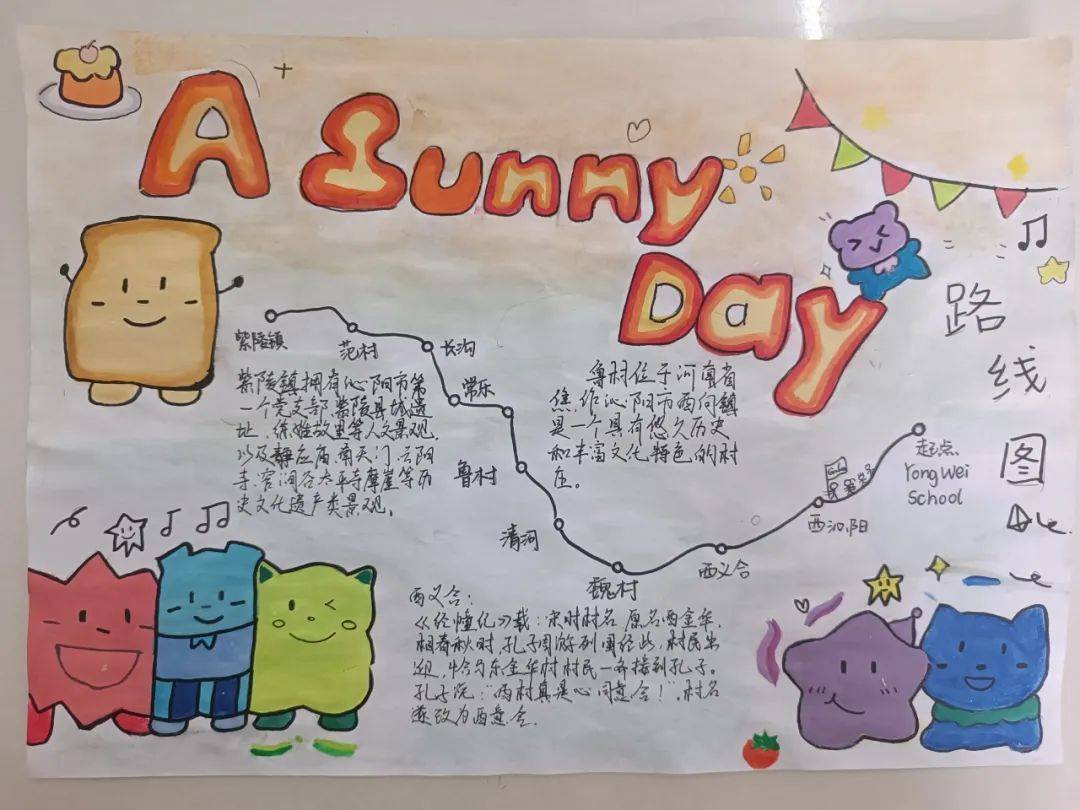 A Sunny
Day
路
线
图
紫陵镇
范村
长沟
常乐
鲁村
清河
魏村
西义合
西沁阳
起点
YongWei
School
紫陵镇拥有沁阳市第
一个党支部、紫陵县城遗
址、徐姓故里等人文景观,
以及静应庙、南天门、云阳
寺、窄涧谷太平寺摩崖等历
史文化遗产类景观。
鲁村位于河南省
焦作沁阳市西向镇
是一个具有悠久历史
和丰富文化特色的村
庄。
西义合:
经幢 载:宋时村名 原名西金华,
相 春秋时,孔子周游列国经此,村民出
迎,恰与东金华村村民一齐接到孔子。
孔子说:“两村真是心同意合!”村名
遂改为西意合.